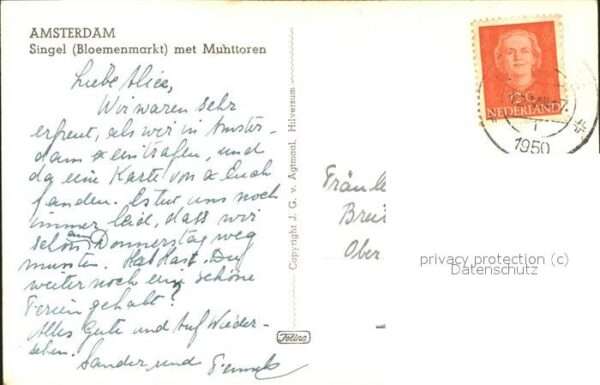 AMSTERDAM
Singel (Bloemenmarkt) met Muhttoren
Liebe Alice,
Wir waren sehr
erfreut, als wir in Amster-
dam eintrafen, und
da eine Karte von Euch
fanden. Es tut uns noch
immer leid, dass wir
schon am Donnerstag weg
mussten. Hat Du
weiter noch eine schöne
Ferien gehabt?
Alles Gute und Auf Wieder-
sehen.
Sander und
Copyright J. G. v. Agtmaal, Hilversum
NEDERLAND
1950
Fräule
Ober
privacy protection (c)
Datenschutz